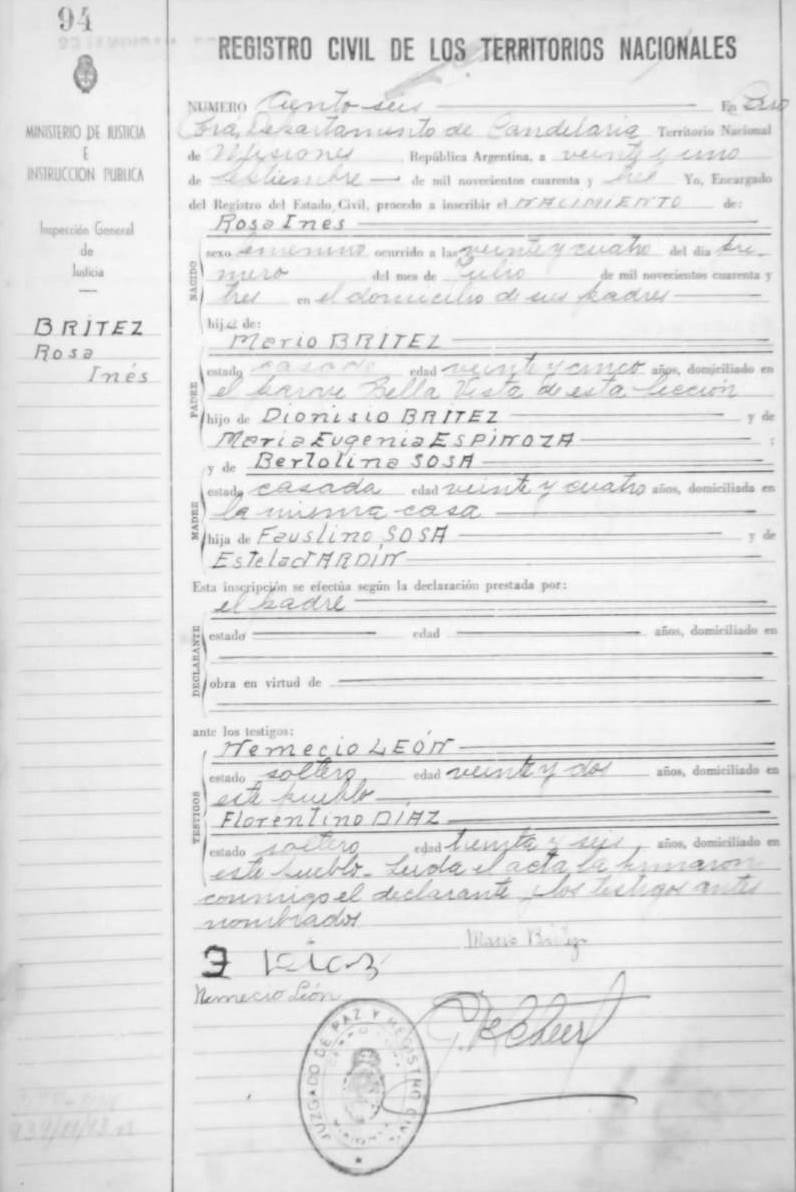 94
MINISTERIO DE JUSTICIA
E
INSTRUCCION PUBLICA
Inspección General
de
Justicia
BRITEZ
Rosa
Inés
REGISTRO CIVIL DE LOS TERRITORIOS NACIONALES
NUMERO Ciento seis En Cerro
Corá, Departamento de Candelaria Territorio Nacional
de Misiones, República Argentina, a veinte y uno
de Setiembre de mil novecientos cuarenta y tres Yo, Encargado
del Registro del Estado Civil, procedo a inscribir el NACIMIENTO de:
Rosa Ines
NACIDO
sexo femenino ocurrido a las veinte y cuatro del dia pri-
mero del mes de Julio de mil novecientos cuarenta y
tres en el domicilio de sus padres
hija de:
Mario BRITEZ
PADRE
estado casado edad veinte y cinco años, domiciliado en
el paraje Bella Vista de esta Sección
hijo de Dionisio BRITEZ y de
Maria Eugenia ESPINOZA ;
y de Bertolina SOSA
MADRE
estado casada edad veinte y cuatro años, domiciliada en
la misma casa
hija de Faustino SOSA y de
Estela JARDÍN
Esta inscripción se efectúa según la declaración prestada por:
el padre
DECLARANTE
estado edad años, domiciliado en
obra en virtud de
ante los testigos:
Nemecio LEÓN
TESTIGOS
estado soltero edad veinte y dos años, domiciliado en
este pueblo
Florentino DÍAZ
estado soltero edad treinta y seis, años, domiciliado en
este pueblo. Leida el acta la firmaron
conmigo el declarante y los testigos antes
nombrados
Mario Britez
F Diaz
Nemecio León
JUZGADO DE PAZ Y REGISTRO CIVIL